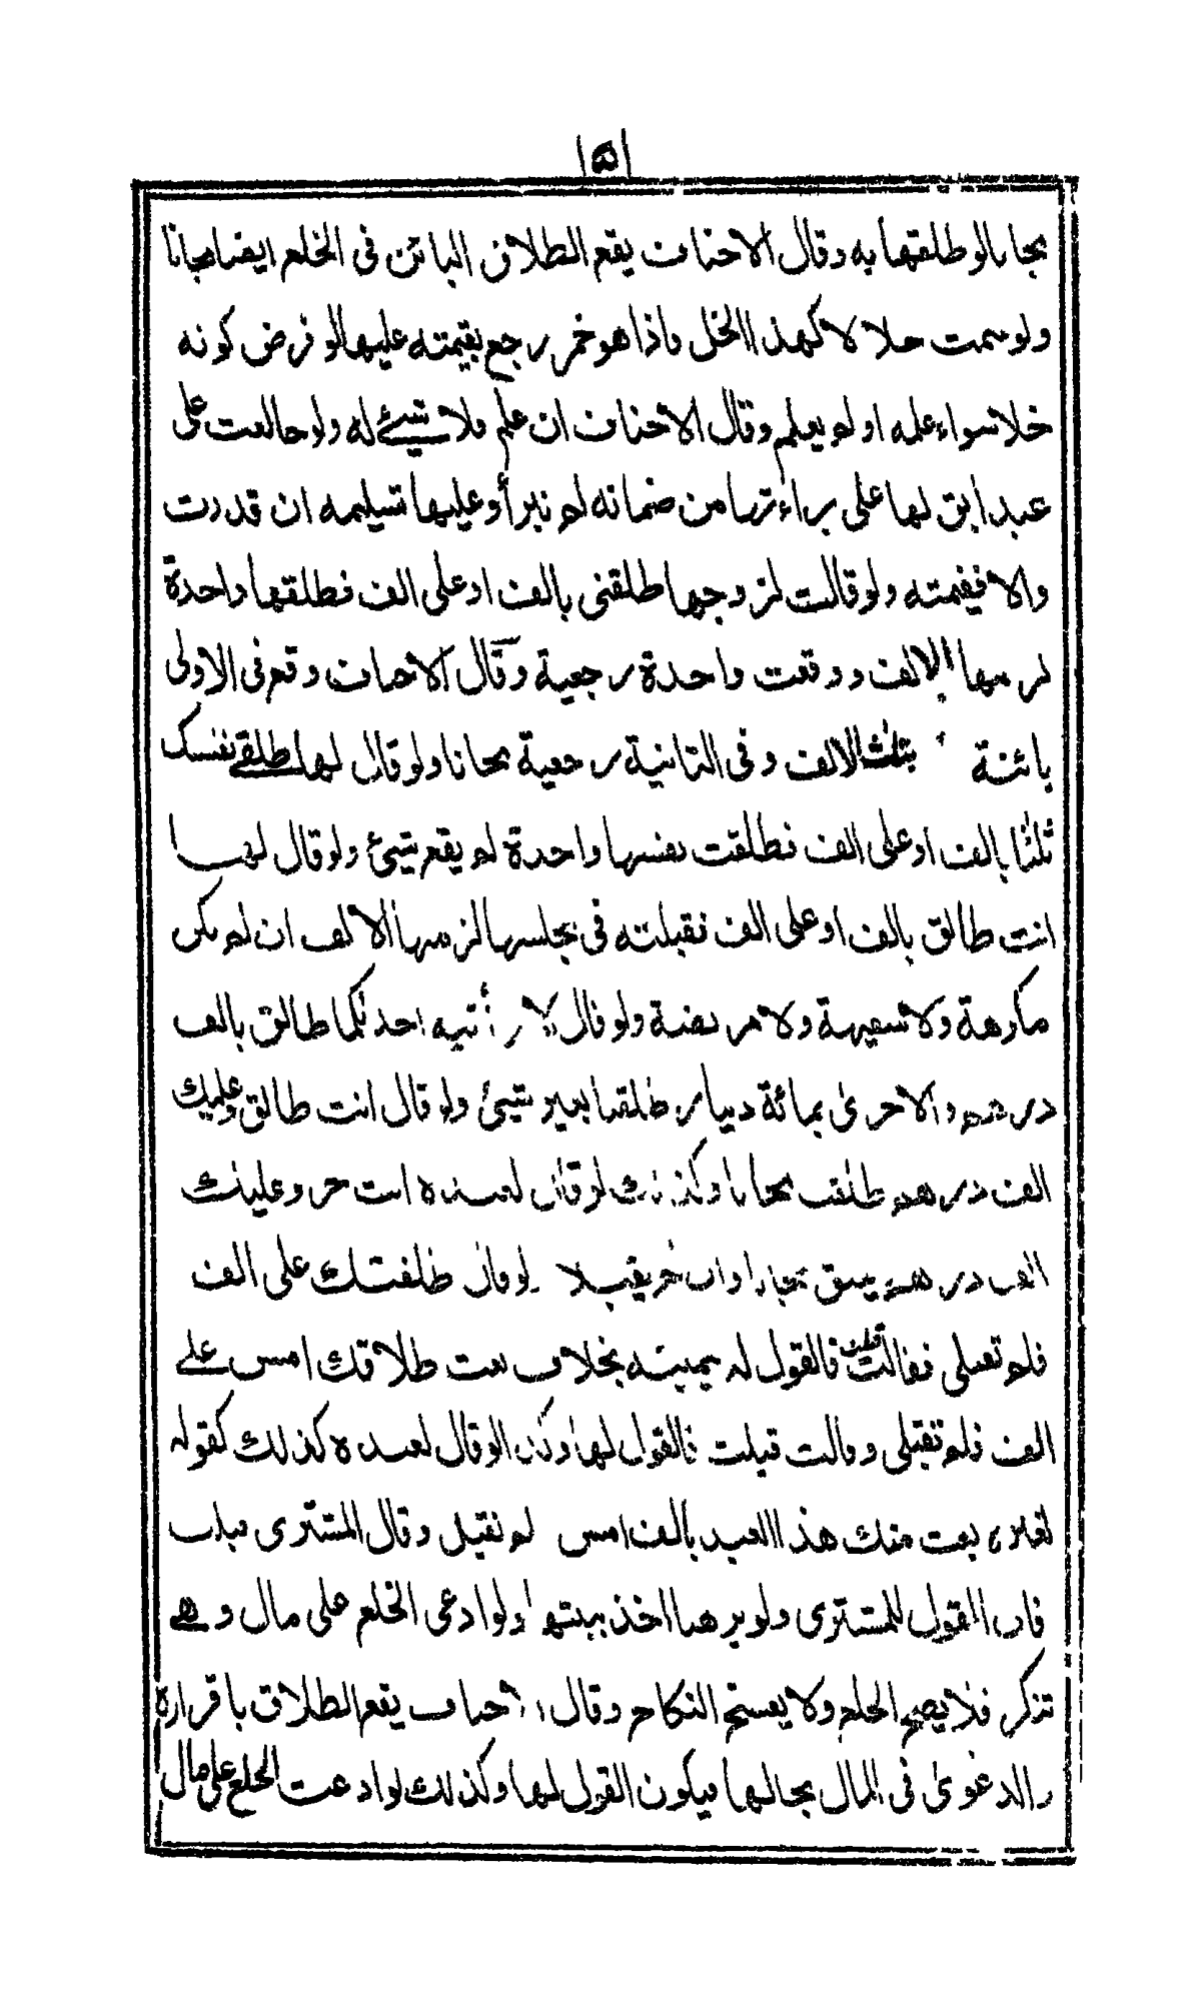 ١٥١
مجانا لو طلقها به وقال الاحناف يقع الطلاق البائن فى الخلع ايضا مجانا
ولو سمت حلالا كهذا الخل فاذا هو خمر رجع بقيمته عليها لو فرض كونه
خلا سواء علمه او لم يعلم وقال الاحناف ان علم فلا شيئ له ولو خالعت على
عبد ابق لها على براءتها من ضمانه لم تبرأ وعليها تسليمه ان قدرت
والا فقيمته ولو قالت لزوجها طلقنى بالف او على الف فطلقها واحدة
لزمها الالف ووقعت واحدة رجعية وقال الاحناف وقع فى الاولى
بائنة بثلث الالف وفى الثانية رجعية مجانا ولو قال لها طلقے نفسك
ثلثا بالف او على الف فطلقت نفسها واحدة لم يقع شيئ ولو قال لها
انت طالق بالف او على الف فقبلته فى مجلسها لزمها الالف ان لم تكن
مكرهة ولا سفيهة ولا مريضة ولو قال لامرأتيه احدكما طالق بالف
درهم والاخرى بمائة دينار طلقتا بغير شيئ ولو قال انت طالق وعليك
الف درهم طلقت مجانا وكذلك لو قال لعبده انت حر وعليك
الف درهم يعتق مجانا وان لم يقبلا ولو قال طلقتك على الف
فلم تقبلى فقالت قبلت فالقول له بيمينه بخلاف بعت طلاقك امس علے
الف فلم تقبلى وقالت قبلت فالقول لها وكذا لو قال لعبده كذلك كقوله
لغيره بعت منك هذا العبد بالف امس لم تقبل وقال المشترى قبلت
فان القول للمشترى ولو برهنا اخذ ببينتها ولو ادعى الخلع على مال وهے
تنكر فلا يصح الخلع ولا يفسخ النكاح وقال الاحناف يقع الطلاق باقراره
والدعوى فى المال بحالها فيكون القول لها وكذلك لو ادعت الخلع على مال